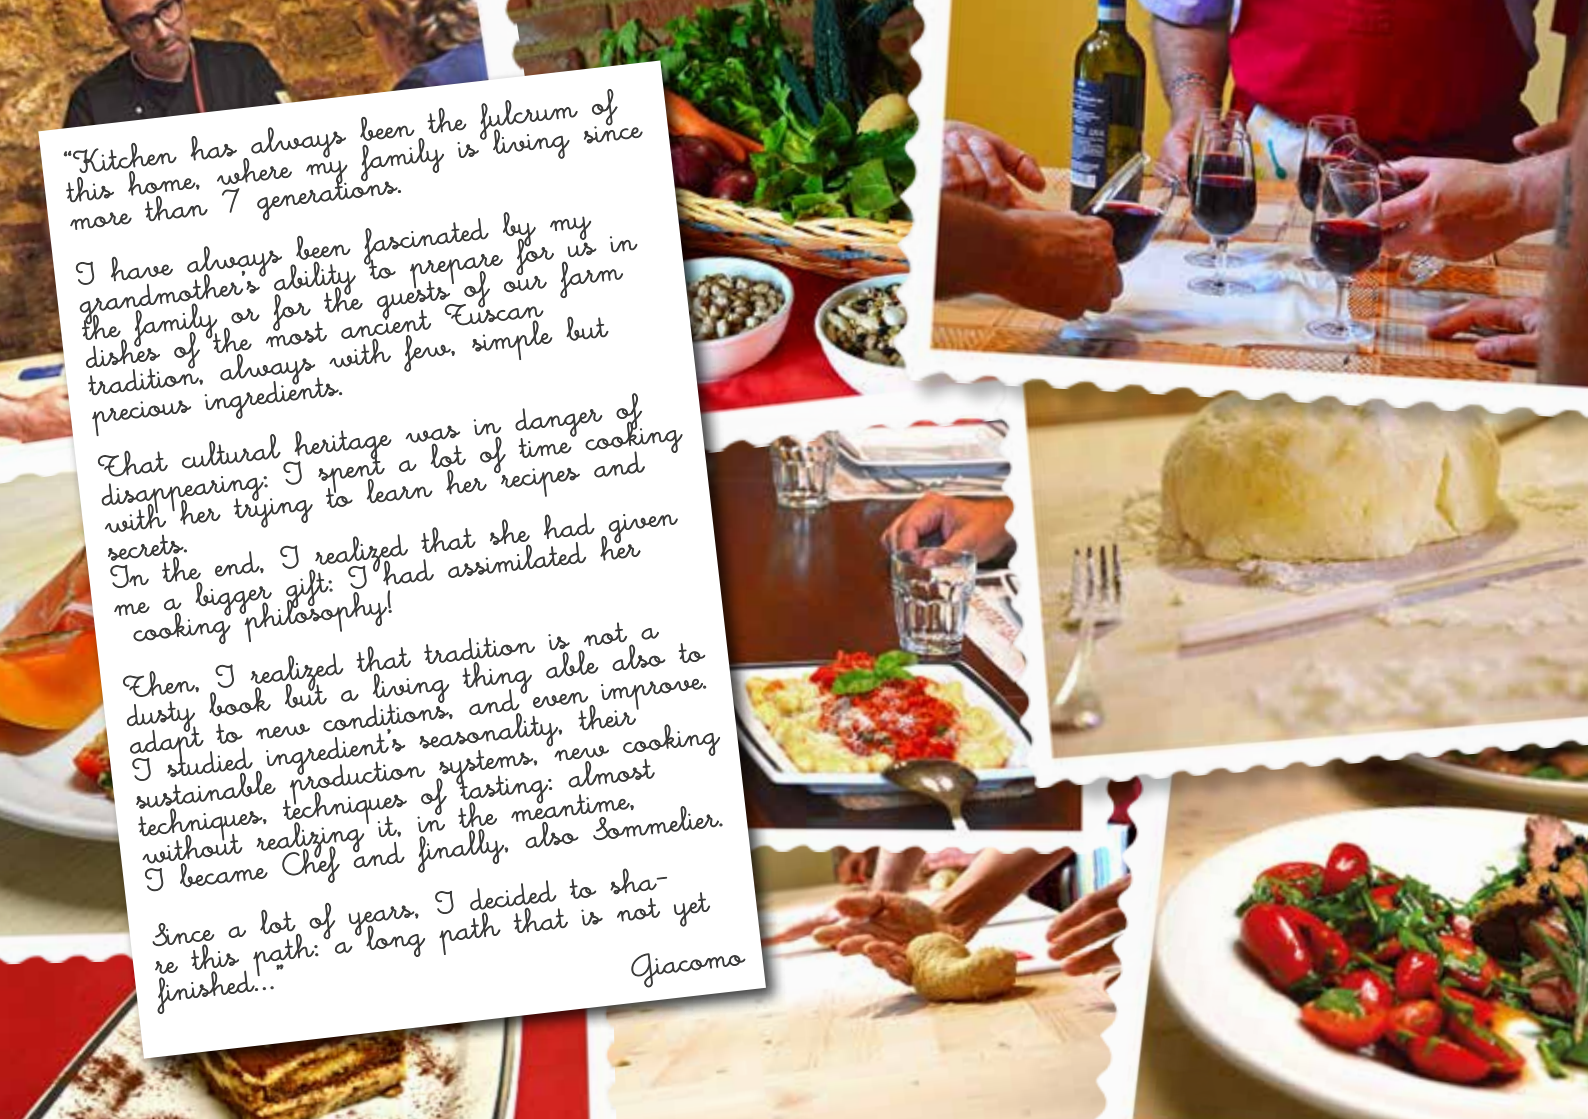 “Kitchen has always been the fulcrum of
this home, where my family is living since
more than 7 generations.
I have always been fascinated by my
grandmother's ability to prepare for us in
the family or for the guests of our farm
dishes of the most ancient Tuscan
tradition, always with few, simple but
precious ingredients.
That cultural heritage was in danger of
disappearing: I spent a lot of time cooking
with her trying to learn her recipes and
secrets.
In the end, I realized that she had given
me a bigger gift: I had assimilated her
cooking philosophy!
Then, I realized that tradition is not a
dusty book but a living thing able also to
adapt to new conditions, and even improve.
I studied ingredient's seasonality, their
sustainable production systems, new cooking
techniques, techniques of tasting: almost
without realizing it, in the meantime,
I became Chef and finally, also Sommelier.
Since a lot of years, I decided to sha-
re this path: a long path that is not yet
finished...”
Giacomo